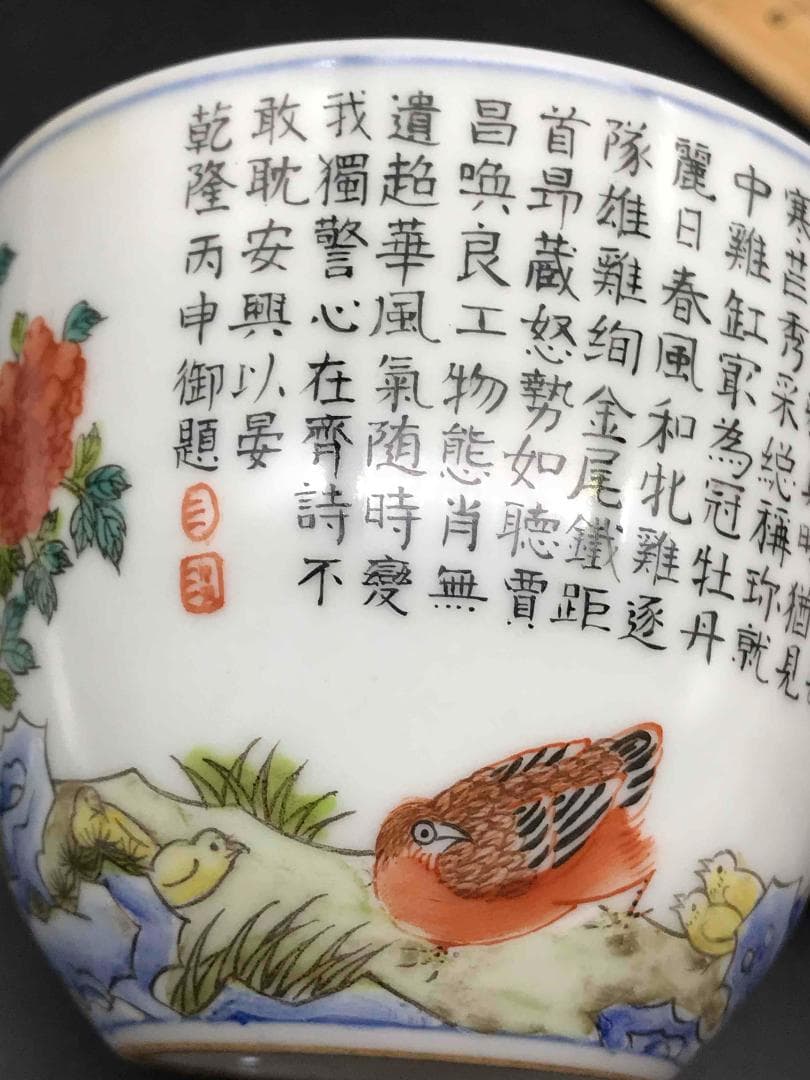 猶見
寒芸秀采総稱珍就
中雞缸冣為冠牡丹
麗日春風和牝雞逐
隊雄雞絢金尾鐵距
首昂藏怒勢如聽賈
昌喚良工物態肖無
遺超華風氣随時變
我獨警心在齊詩不
敢耽安興以晏
乾隆丙申御題